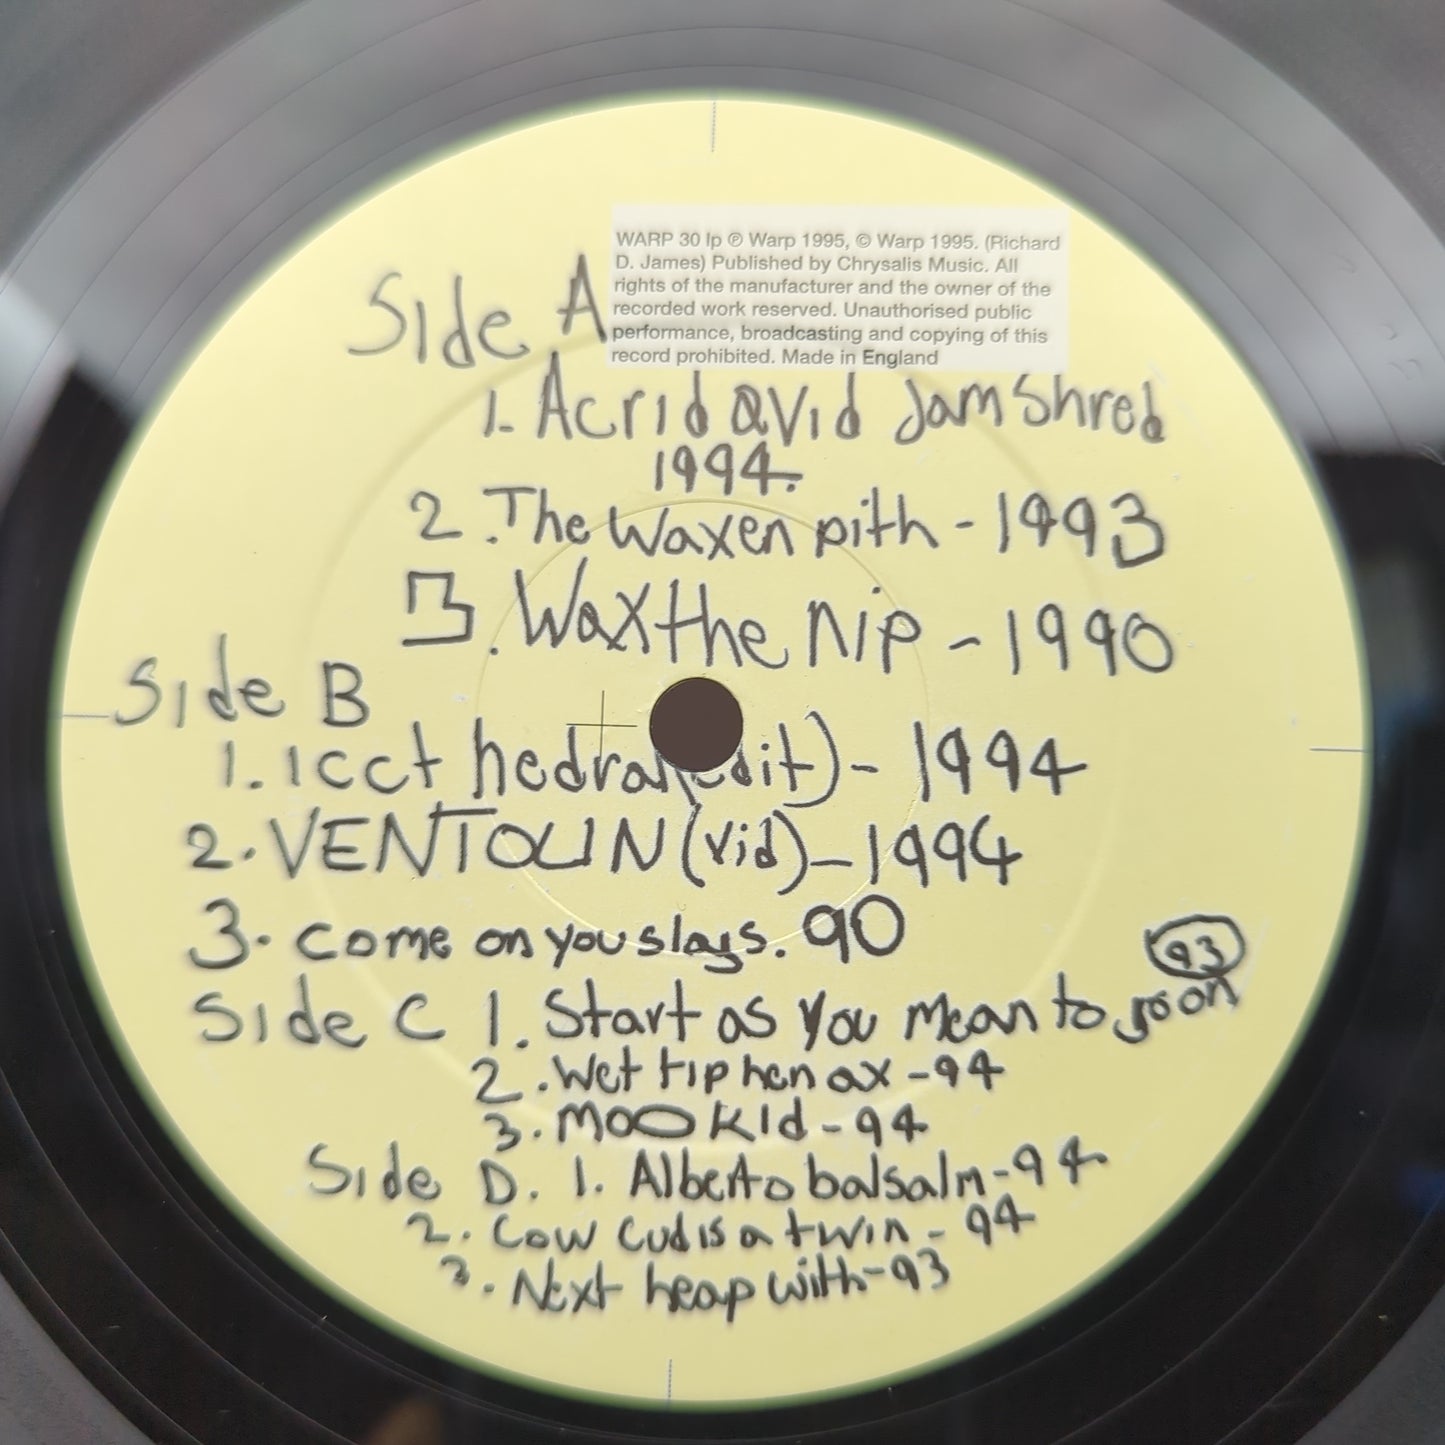 WARP 30 lp ℗ Warp 1995, © Warp 1995. (Richard
D. James) Published by Chrysalis Music. All
rights of the manufacturer and the owner of the
recorded work reserved. Unauthorised public
performance, broadcasting and copying of this
record prohibited. Made in England
Side A
1. Acrid avid Jam Shred
1994.
2. The Waxen pith - 1993
3. Wax the nip - 1990
Side B
1. icct hedral (edit) - 1994
2. VENTOLIN (vid) - 1994
3. come on you slags. 90
93
Side C 1. Start as you mean to go on
2. Wet tip hen ax - 94
3. MOOKID - 94
Side D. 1. Alberto balsalm - 94
2. Cow cud is a twin - 94
3. Next heap with - 93